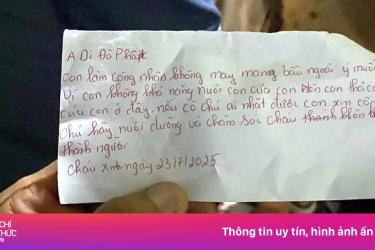 A Di Đà Phật
Con làm công nhân không may mang bầu ngoài ý muốn
Vì con không khả năng nuôi con của con nên con thả co
của con ở đây, nếu cô chú ai nhặt được con xin cô
chú hãy nuôi dưỡng và chăm sóc cháu thành khôn
thành người
Cháu sinh ngày 23/7/2025.
CHÍ
THỨC
Thông tin uy tín, hình ảnh ấn